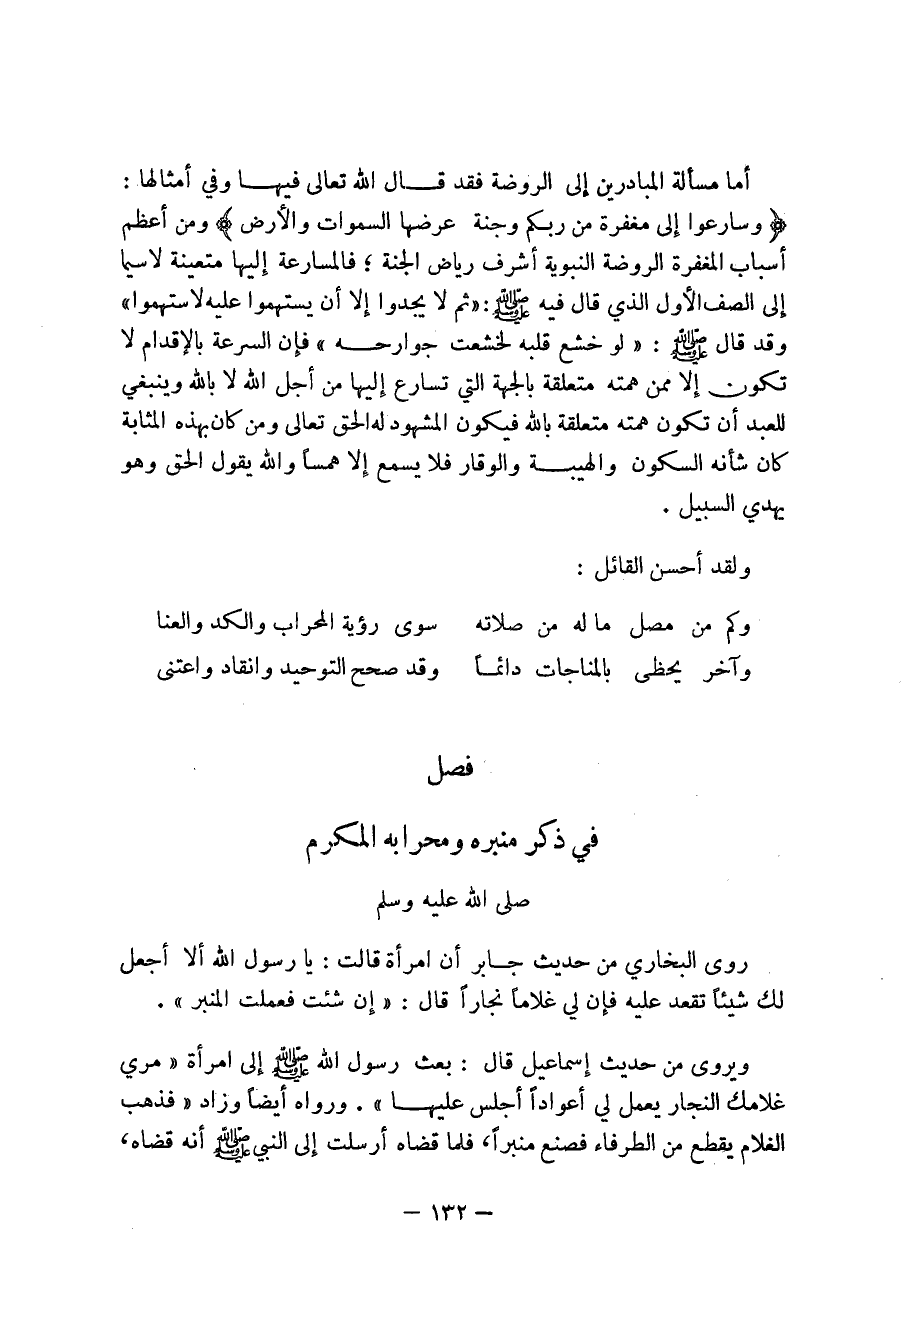 أما مسألة المبادرين إلى الروضة فقد قـــال الله تعالى فيهـــا وفي أمثالها :
﴿ وسارعوا إلى مغفرة من ربكم وجنة عرضها السموات والأرض ﴾ ومن أعظم
أسباب المغفرة الروضة النبوية أشرف رياض الجنة ؛ فالمسارعة إليها متعينة لاسيما
إلى الصف الأول الذي قال فيه ﷺ : «ثم لا يجدوا إلا أن يستهموا عليه لاستهموا»
وقد قال ﷺ : « لو خشع قلبه لخشعت جوارحـــه » فإن السرعة بالإقدام لا
تكون إلا ممن همته متعلقة بالجهة التي تسارع إليها من أجل الله لا بالله وينبغي
للعبد أن تكون همته متعلقة بالله فيكون المشهود له الحق تعالى ومن كان بهذه المثابة
كان شأنه السكون والهيبـــة والوقار فلا يسمع إلا همساً والله يقول الحق وهو
يهدي السبيل .
ولقد أحسن القائل :
وكم من مصل ماله من صلاته سوى رؤية المحراب والكد والعنا
وآخر يحظى بالمناجات دائمـاً وقد صحح التوحيد وانقاد واعتنى
فصل
في ذكر منبره ومحرابه المكرم
صلى الله عليه وسلم
روى البخاري من حديث جـابر أن امرأة قالت : يا رسول الله ألا أجعل
لك شيئاً تقعد عليه فإن لي غلاماً نجاراً قال : « إن شئت فعملت المنبر » .
ويروى من حديث إسماعيل قال : بعث رسول الله ﷺ إلى امرأة « مري
غلامك النجار يعمل لي أعواداً أجلس عليهـــا » . ورواه أيضاً وزاد « فذهب
الغلام يقطع من الطرفاء فصنع منبراً، فلما قضاه أرسلت إلى النبي ﷺ أنه قضاه،
— ١٣٢ —